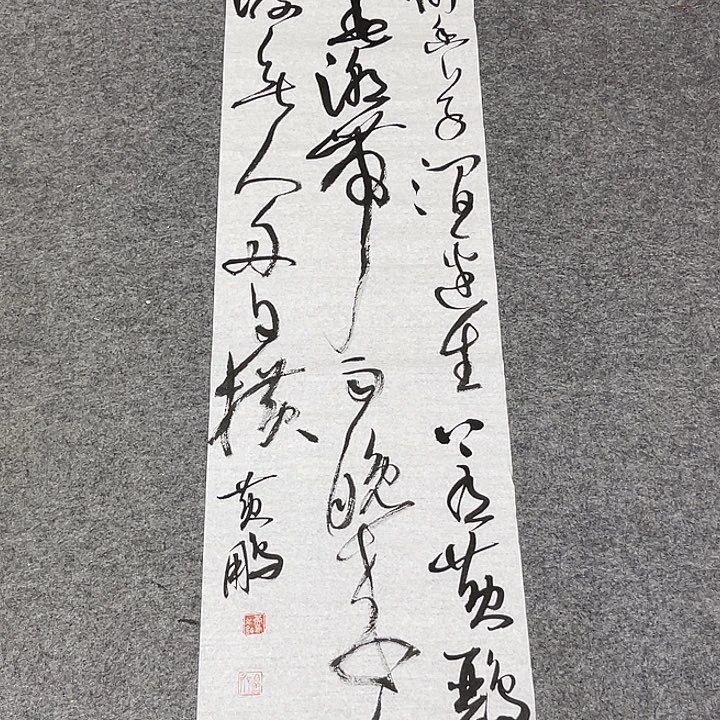 幽草涧邊生上有黄鹂
潮帶雨晚来
渡無人舟自横
黄鹏